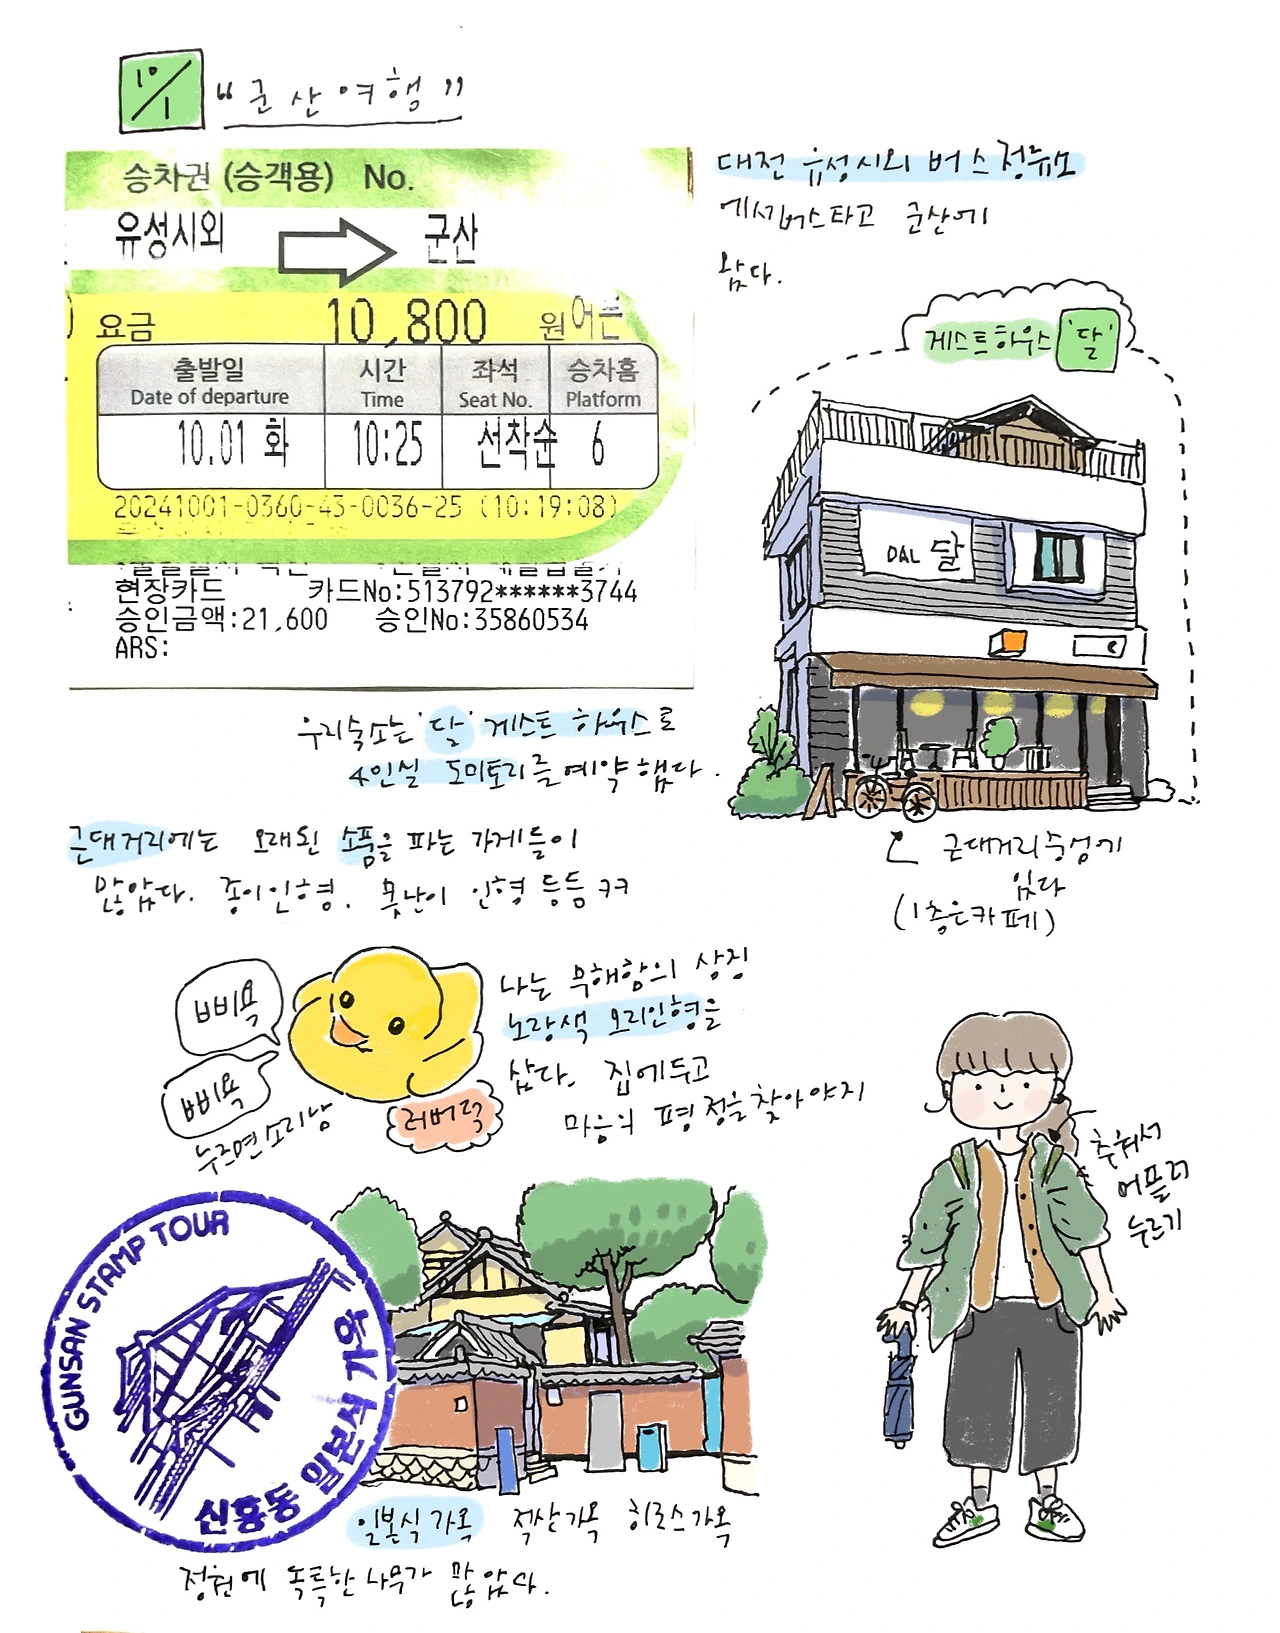 10/1 "군산여행"
승차권 (승객용) No.
유성시외 군산
요금 10,800 원 어른
출발일 시간 좌석 승차홈
Date of departure Time Seat No. Platform
10.01 화 10:25 선착순 6
20241001-0360-43-0036-25 (10:19:08)
현장카드 카드No:513792******3744
승인금액:21,600 승인No:35860534
ARS:
대전 유성시외 버스정류소
에서 버스타고 군산에
왔다.
게스트하우스 '달'
DAL 달
우리숙소는 '달' 게스트 하우스로
4인실 도미토리를 예약했다.
근대거리중심에
있다
(1층은카페)
근대거리에는 오래된 소품을 파는 가게들이
많았다. 종이인형. 못난이 인형 등등 ㅋㅋ
삐삑
삐삑
누르면소리남
러버덕
나는 무해함의 상징
노랑색 오리인형을
샀다. 집에두고
마음의 평정을찾아야지
추워서
어플러
누르기
GUNSAN STAMP TOUR
신흥동 일본식 가옥
일본식 가옥 적산가옥 히로스가옥
정원에 독특한 나무가 많았다.